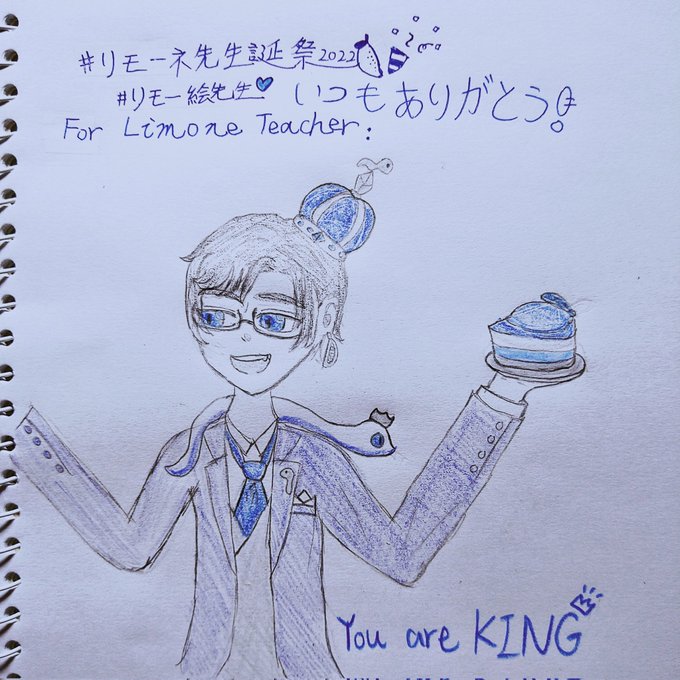 #リモーネ先生誕祭2022
#リモー絵先生 いつもありがとう!
For Limone Teacher:
You are KING